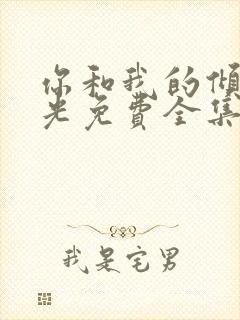 你和我的倾
光免费全集
我是宅男